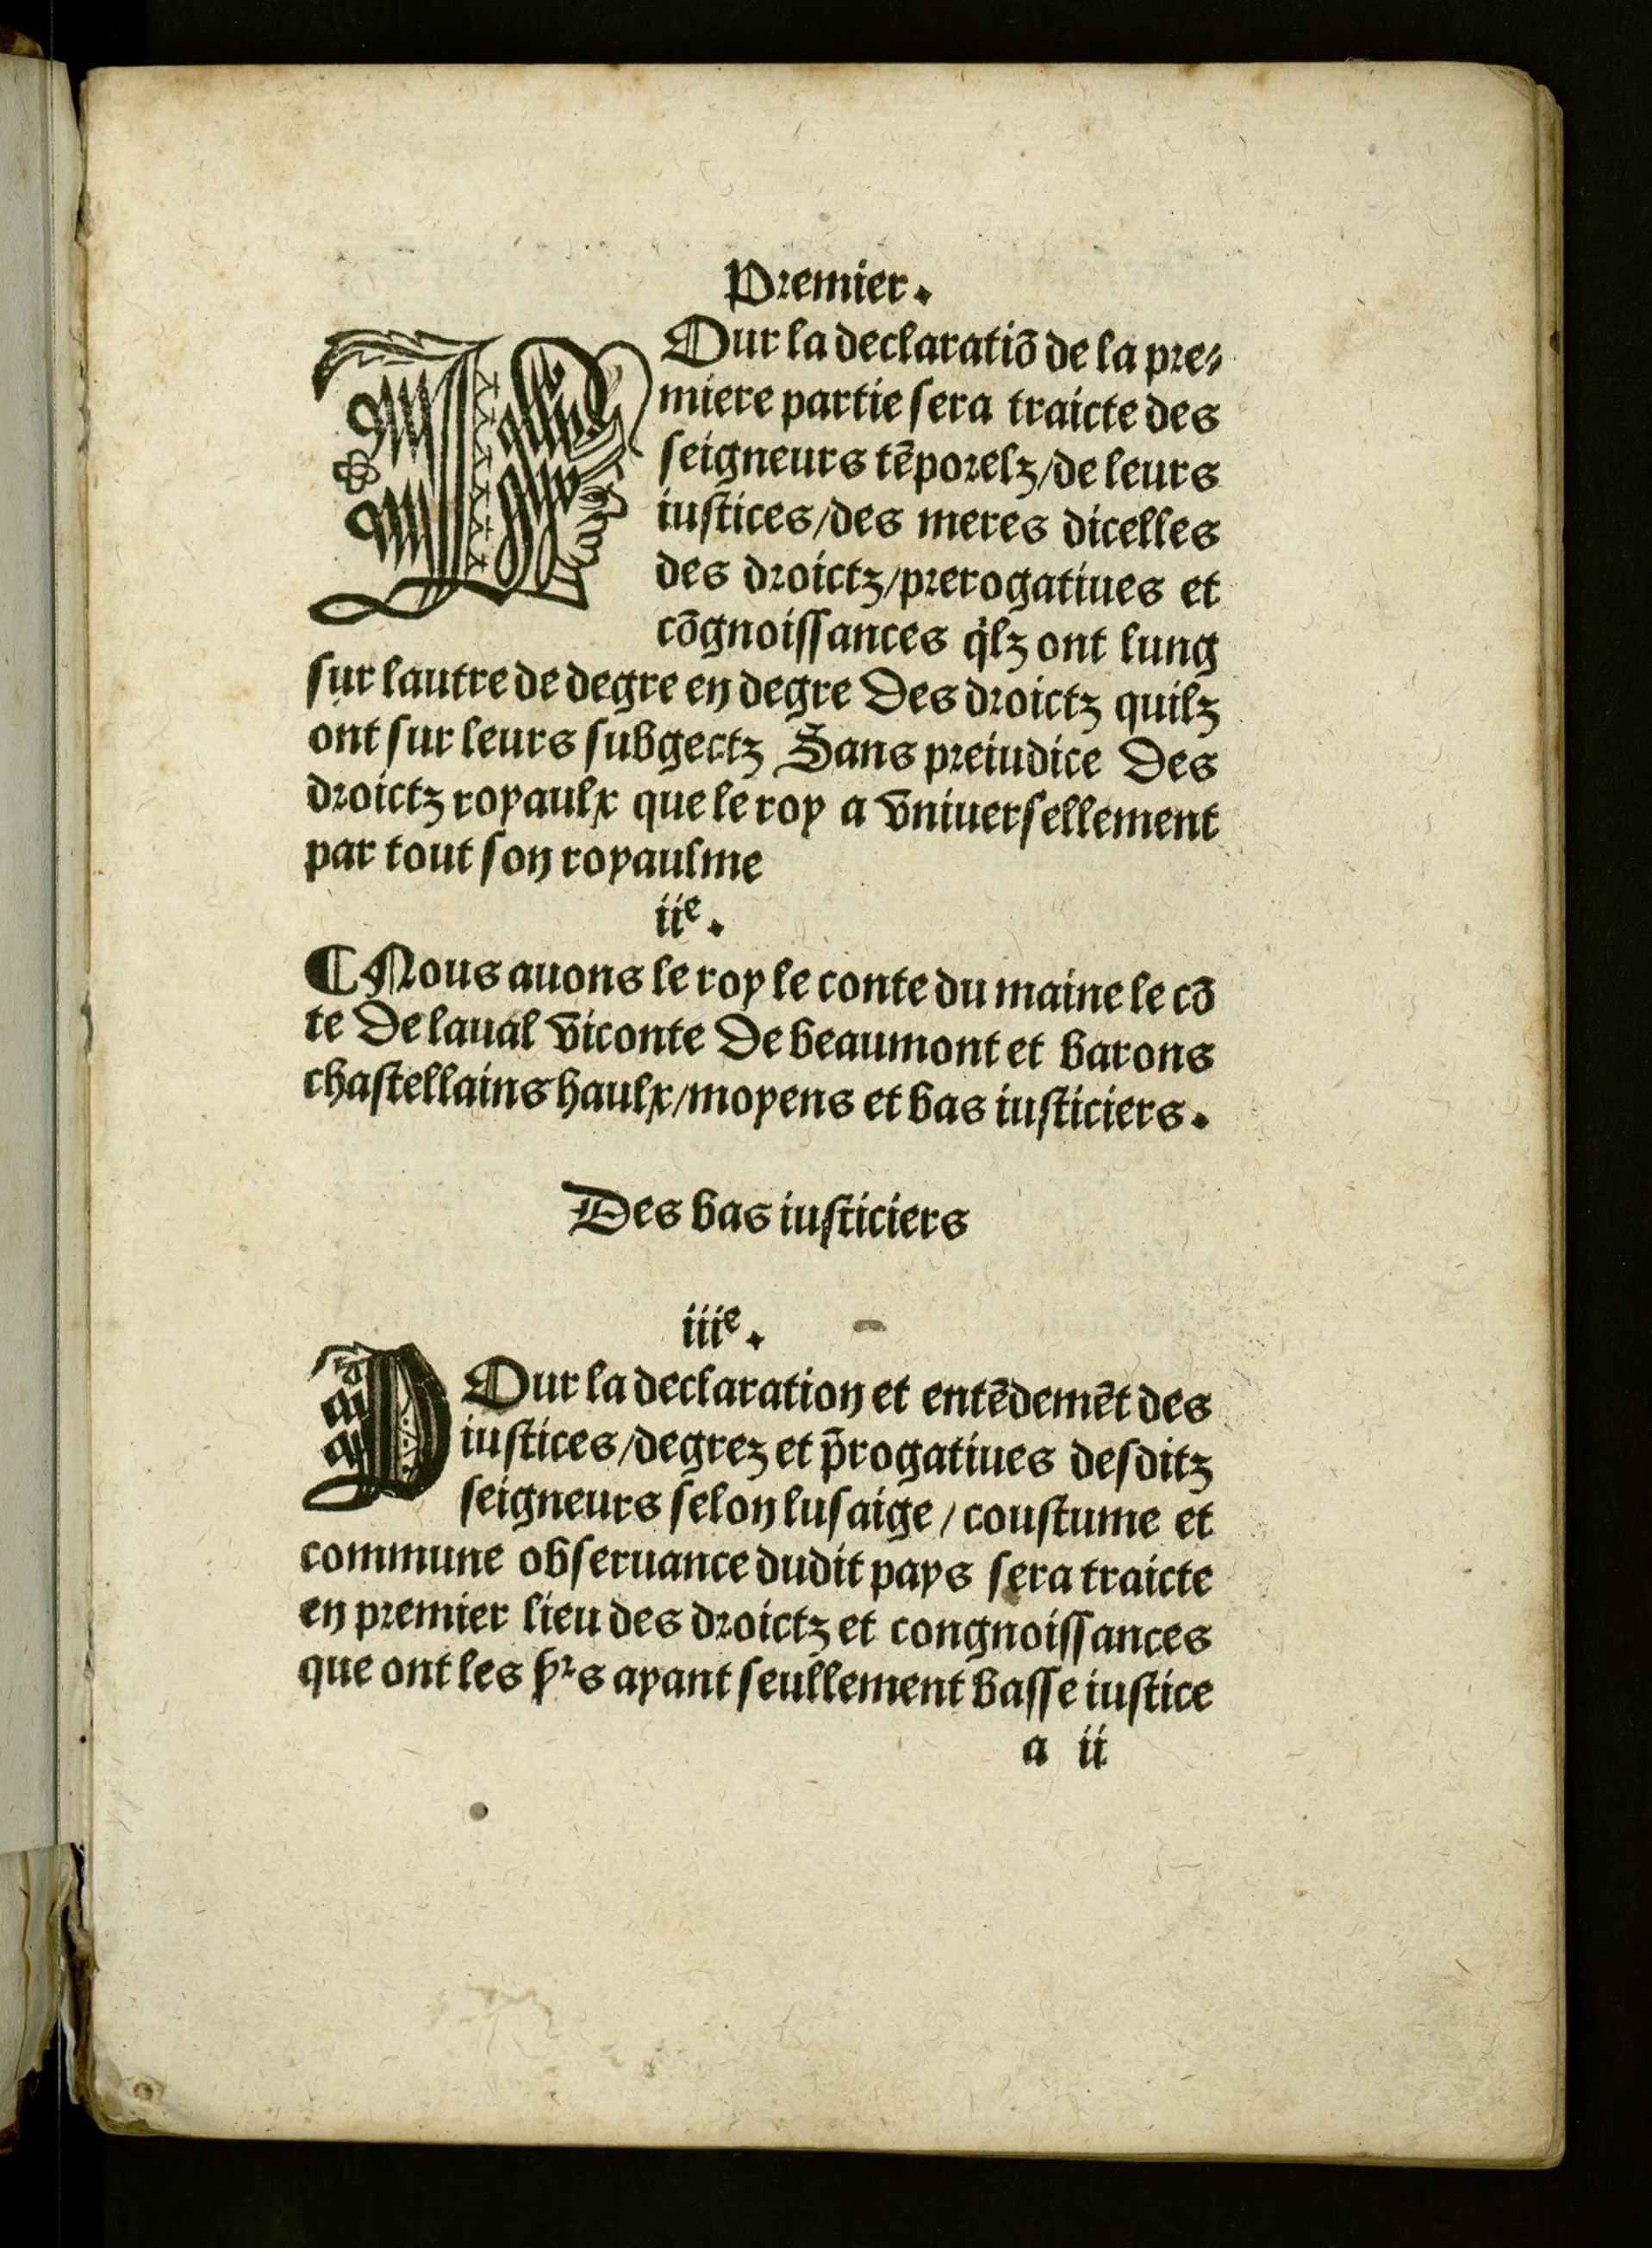 Premier.
POur la declaratiõ de la pre-
miere partie sera traicte des
seigneurs tẽporelz/de leurs
iustices/des meres dicelles
des droictz/prerogatiues et
cõgnoissances q̃lz ont lung
sur lautre de degre en degre Des droictz quilz
ont sur leurs subgectz Sans preiudice Des
droictz royaulx que le roy a vniuersellement
par tout son royaulme
iie.
¶Nous auons le roy le conte du maine le cõ
te De laual viconte De beaumont et barons
chastellains haulx/moyens et bas iusticiers.
Des bas iusticiers
iiie.
POur la declaration et entẽdemẽt des
iustices/degrez et p̃rogatiues desditz
seigneurs selon lusaige / coustume et
commune obseruance dudit pays sera traicte
en premier lieu des droictz et congnoissances
que ont les srs ayant seullement basse iustice
a ii